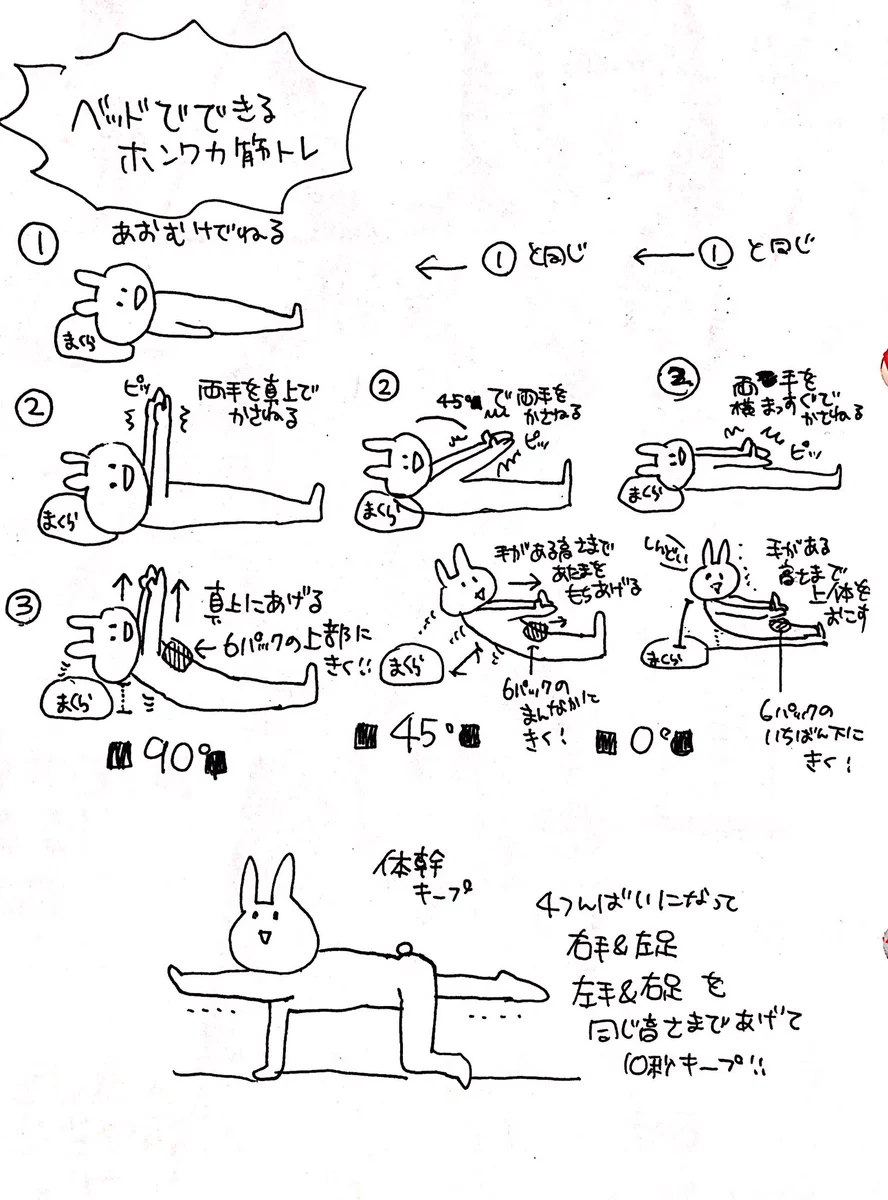 ベッドでできる
ホンワカ筋トレ
① あおむけでねる
まくら
← ① と同じ
← ① と同じ
②
ピッ
両手を真上で
かさねる
まくら
②
45°で両手を
かさねる
ピッ
まくら
②
両手を
横まっすぐで
かさねる
ピッ
まくら
③
真上にあげる
←6パックの上部に
きく!!
まくら
90°
手がある高さまで
あたまを
もちあげる
まくら
6パックの
まんなかに
きく!
45°
しんどい
手がある
高さまで
上体を
おこす
まくら
6パックの
いちばん下に
きく!
0°
体幹
キープ
4つんばいになって
右手&左足
左手&右足 を
同じ高さまであげて
10秒キープ!!